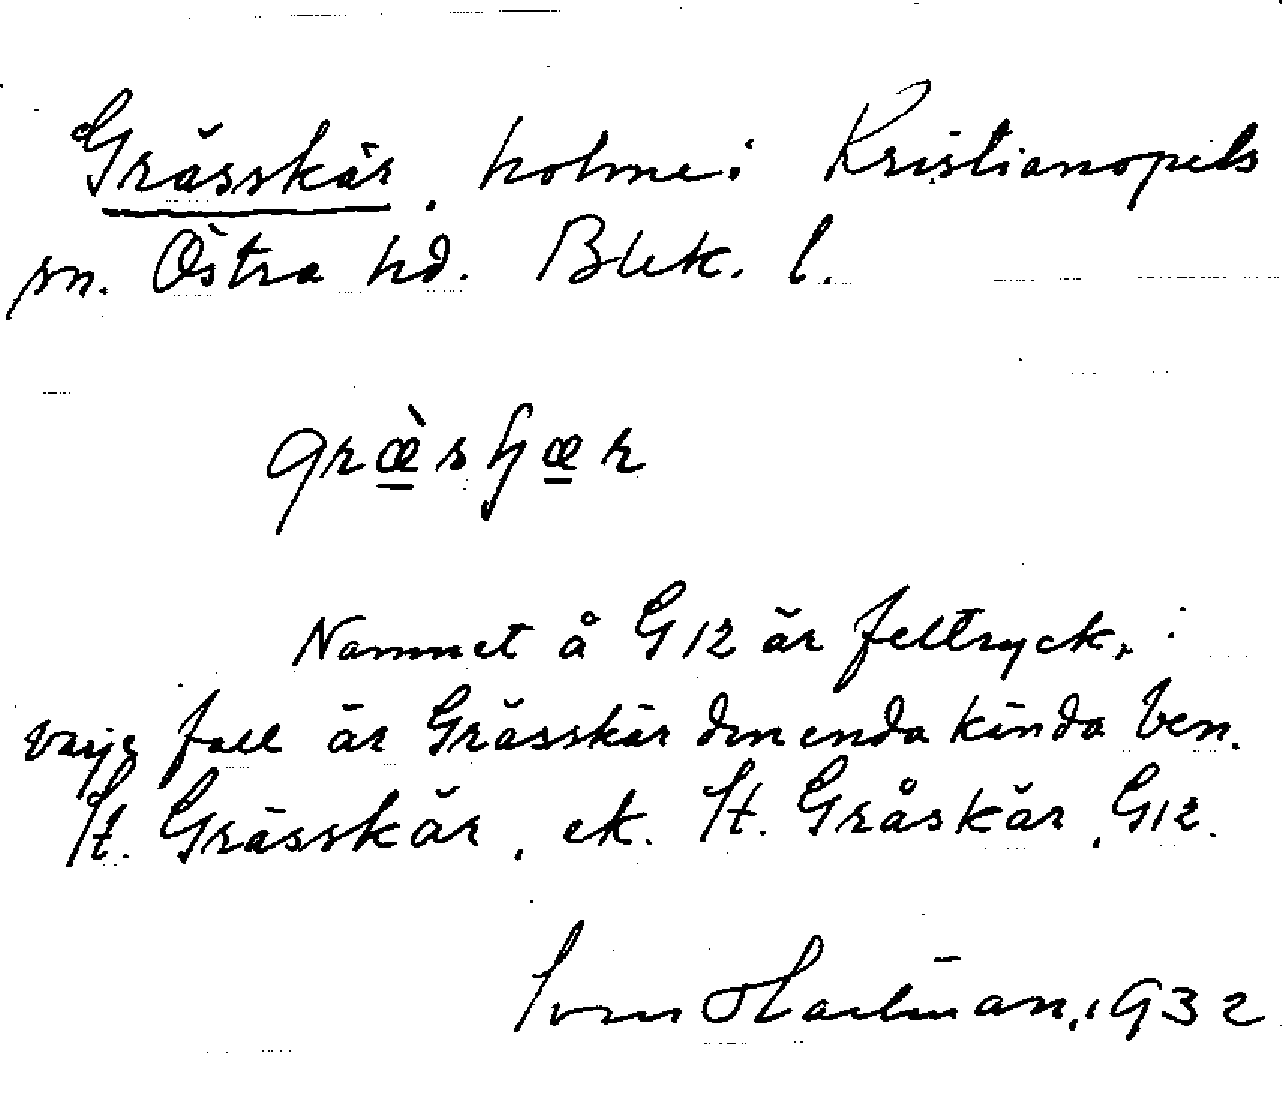 Grässkär, holme i Kristianopels
sn. Östra hd. Blek. l.
græ̀sҕær
Namnet å G12 är feltryck, i
varje fall är Grässkär den enda kända ben.
St. Grässkär, ek. St. Gråskär, G12.
Sven Hartman, 1932